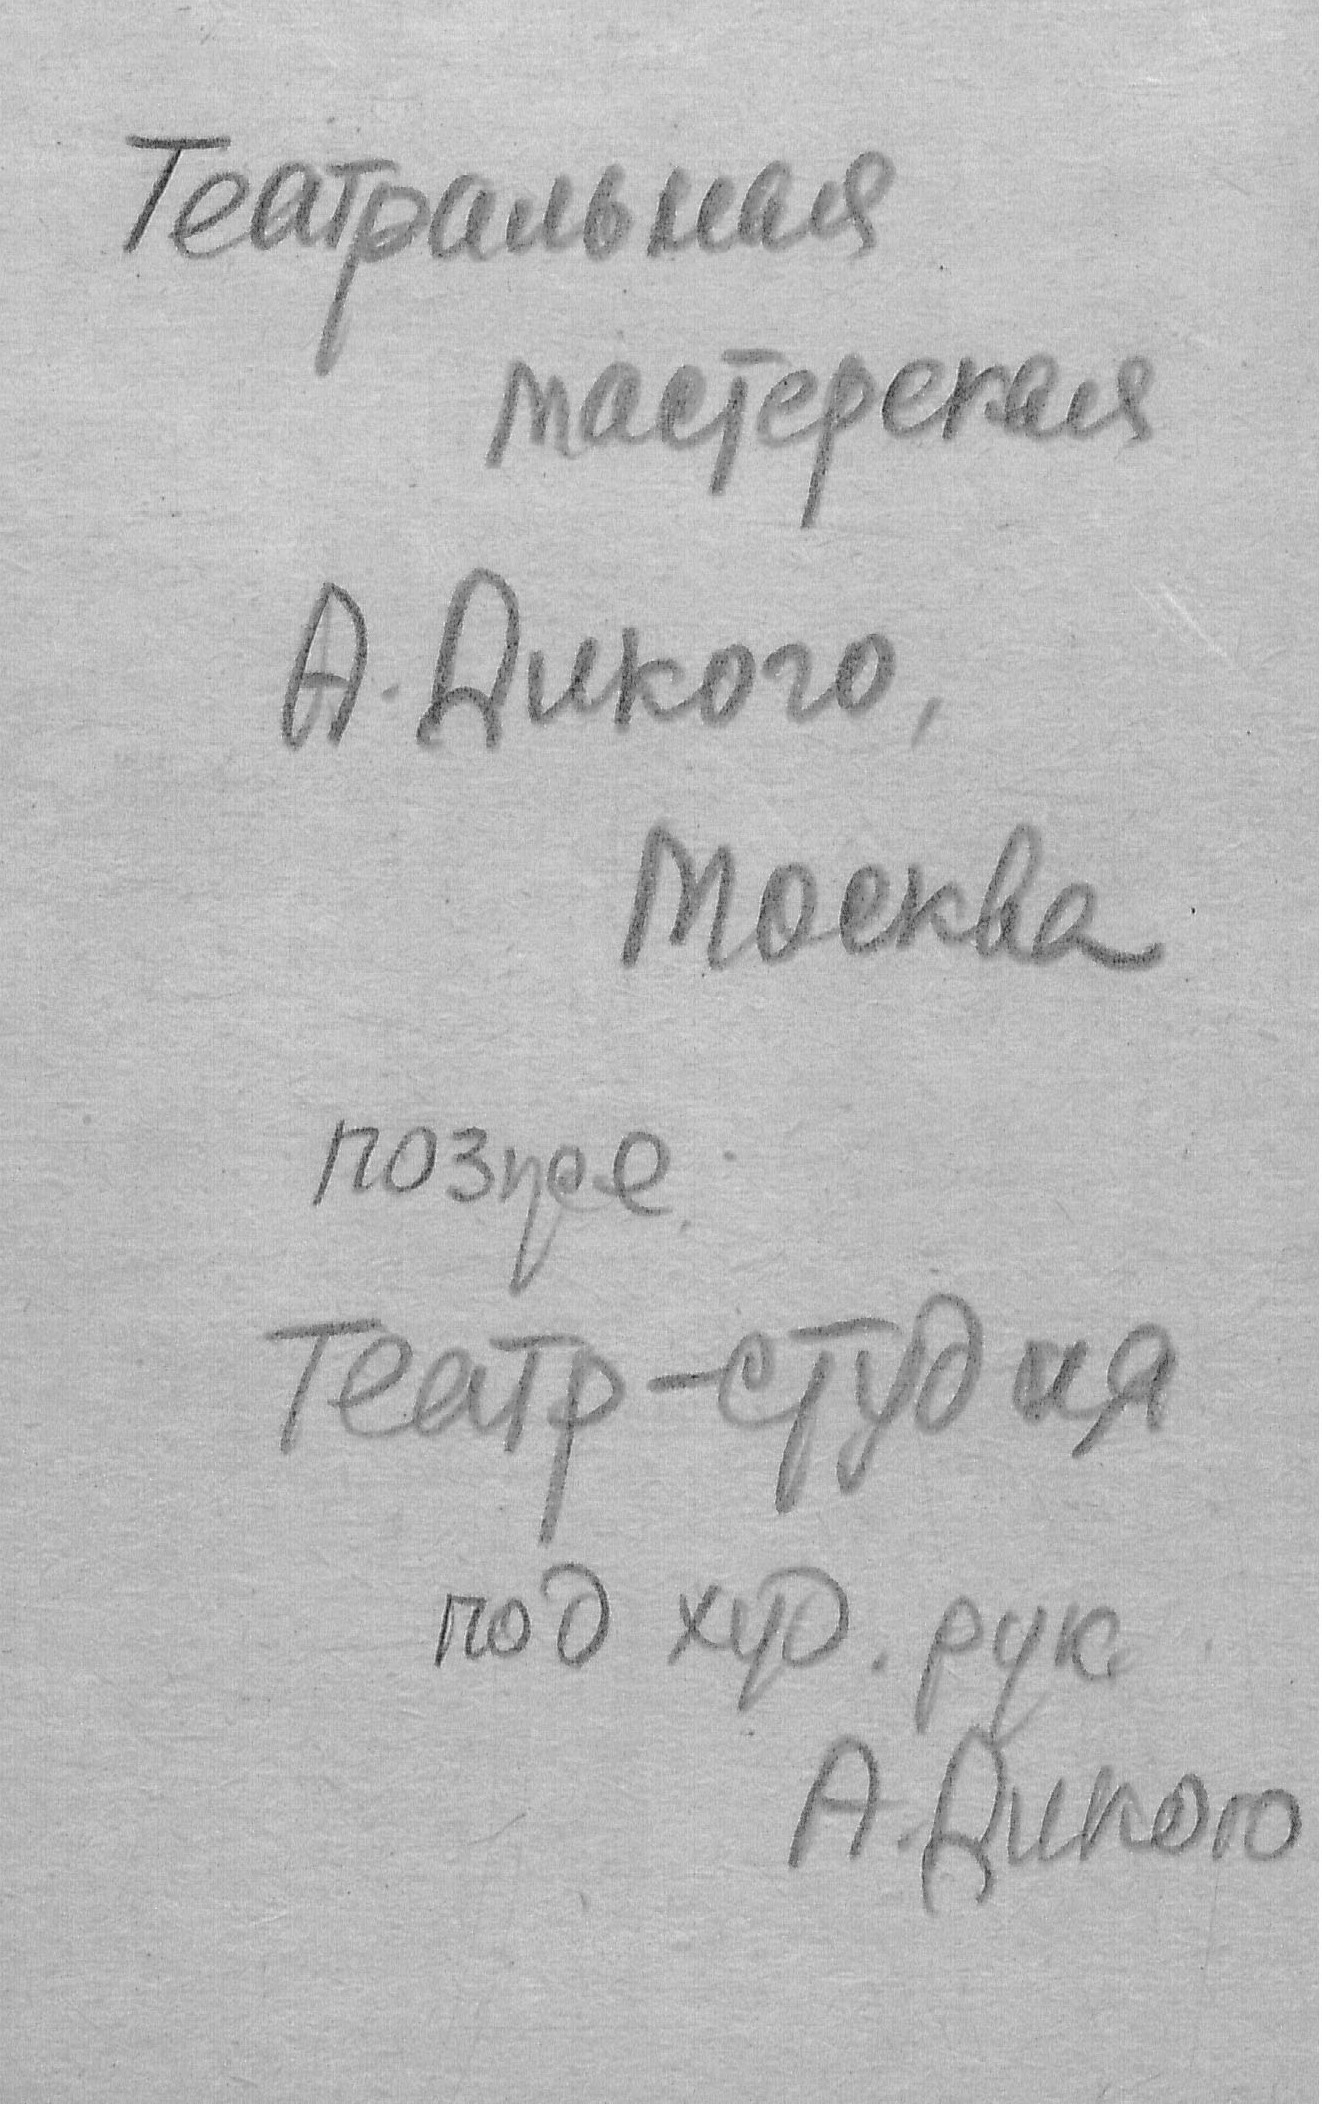 Театральная
мастерская
А. Дикого,
Москва
позуее
Театр-студия
под худ. рук
А. Дикого